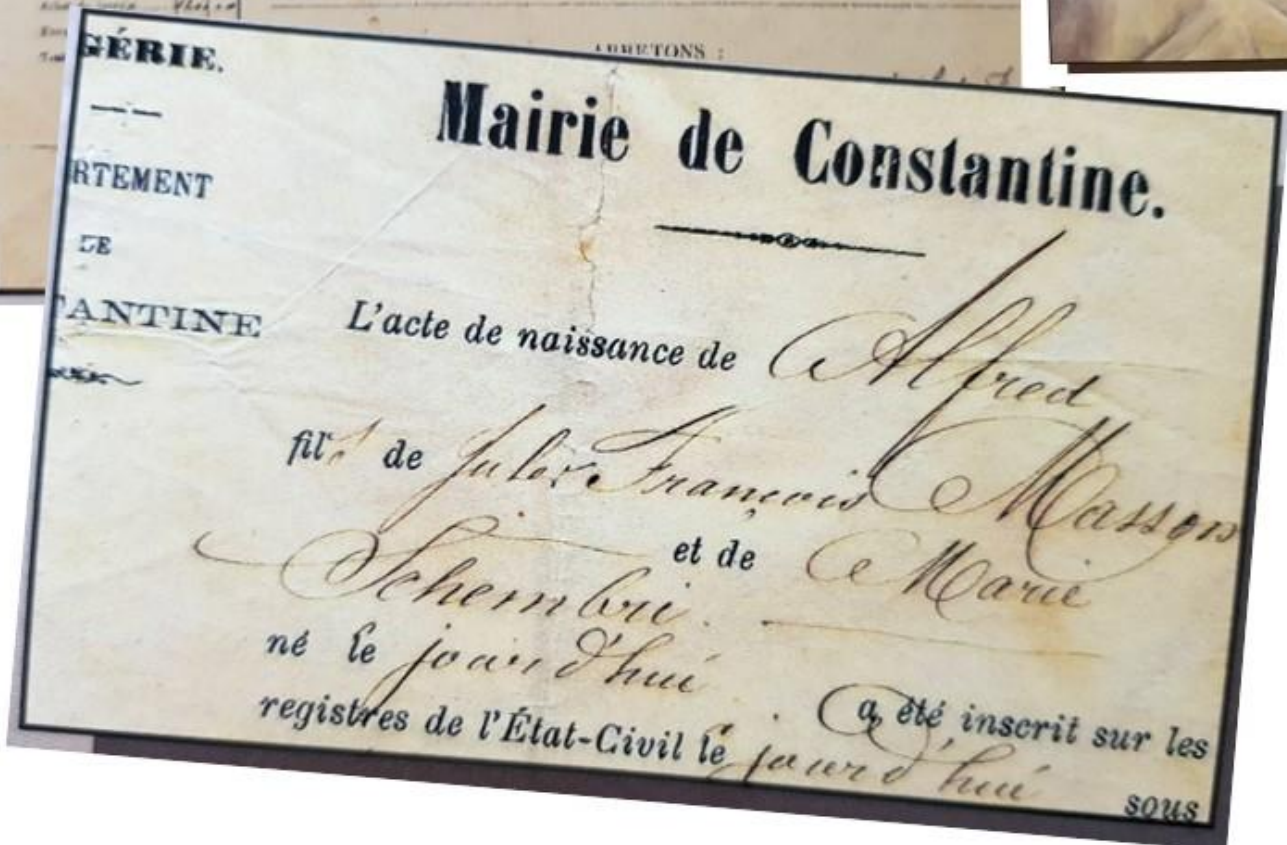 ARRETONS :
GÉRIE.
RTEMENT
DE
ANTINE
Mairie de Constantine.
L'acte de naissance de Alfred
fils de Jules François Masson
et de Marie
Schembri.
né le jourd'hui a été inscrit sur les
registres de l'État-Civil le jourd'hui
sous